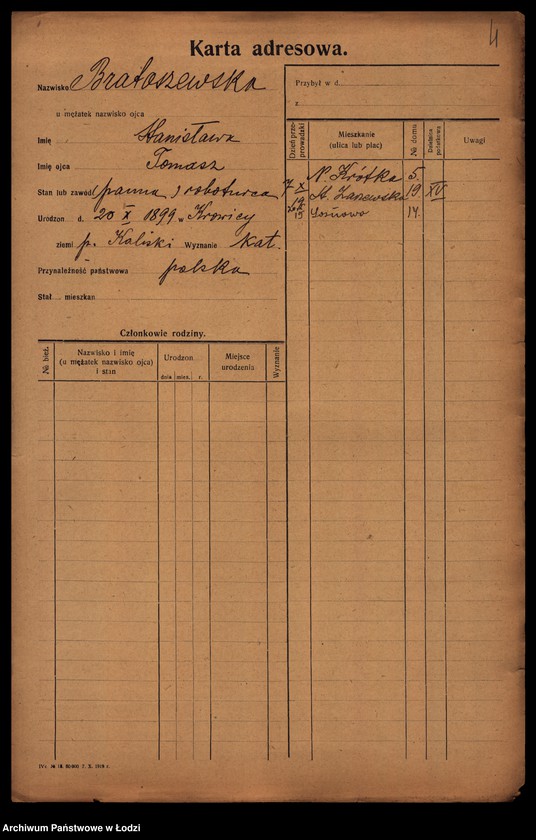 4
Karta adresowa.
Nazwisko Bratoszewska
u mężatek nazwisko ojca
Imię Stanisława
Imię ojca Tomasz
Stan lub zawód (panna) robotnica
Urodzon d. 20 X 1899 w Krowicy
ziemi p. Kaliski Wyznanie kat.
Przynależność państwowa polska
Stał. mieszkan
Członkowie rodziny.
№ bież.
Nazwisko i imię
(u mężatek nazwisko ojca)
i stan
Urodzon
dnia mies. r.
Miejsce
urodzenia
Wyznanie
Przybył w d.
z
Dzień przeprowadzki
Mieszkanie
(ulica lub plac)
№ domu
Dzielnica podatkowa
Uwagi
N Krótka 5.
7 X 19 19 XV
14.
IVc № 18. 60.000 7. X. 1919 r.
Archiwum Państwowe w Łodzi